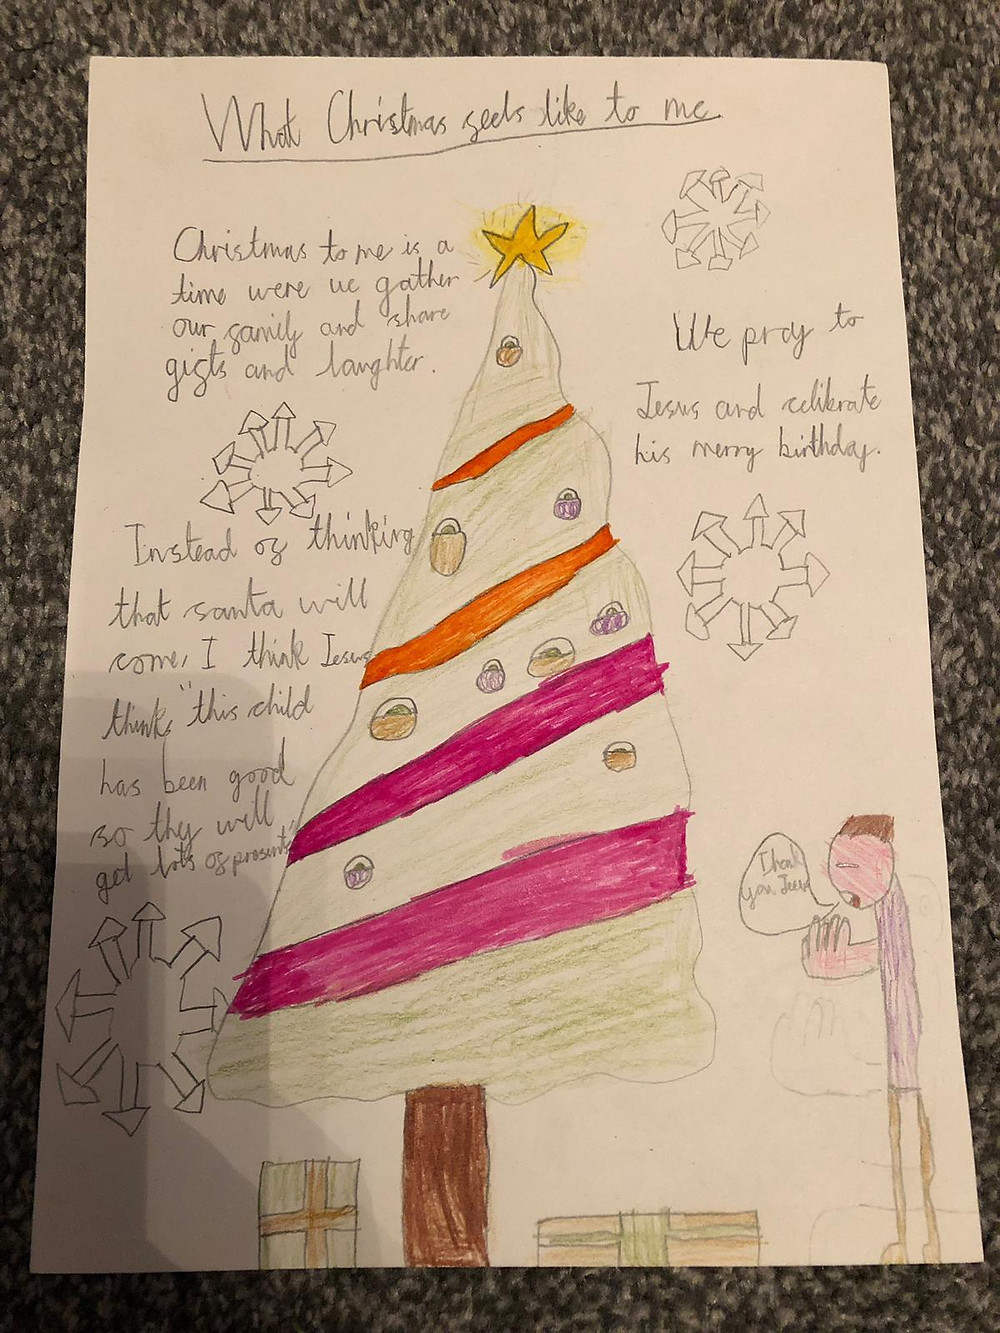 What Christmas feels like to me.
Christmas to me is a
time were we gather
our family and share
gifts and laughter.
We pray to
Jesus and celibrate
his merry birthday.
Instead of thinking
that santa will
come, I think Jesus
think, "this child
has been good
so they will
get lots of presents"
Thank
you Jesus